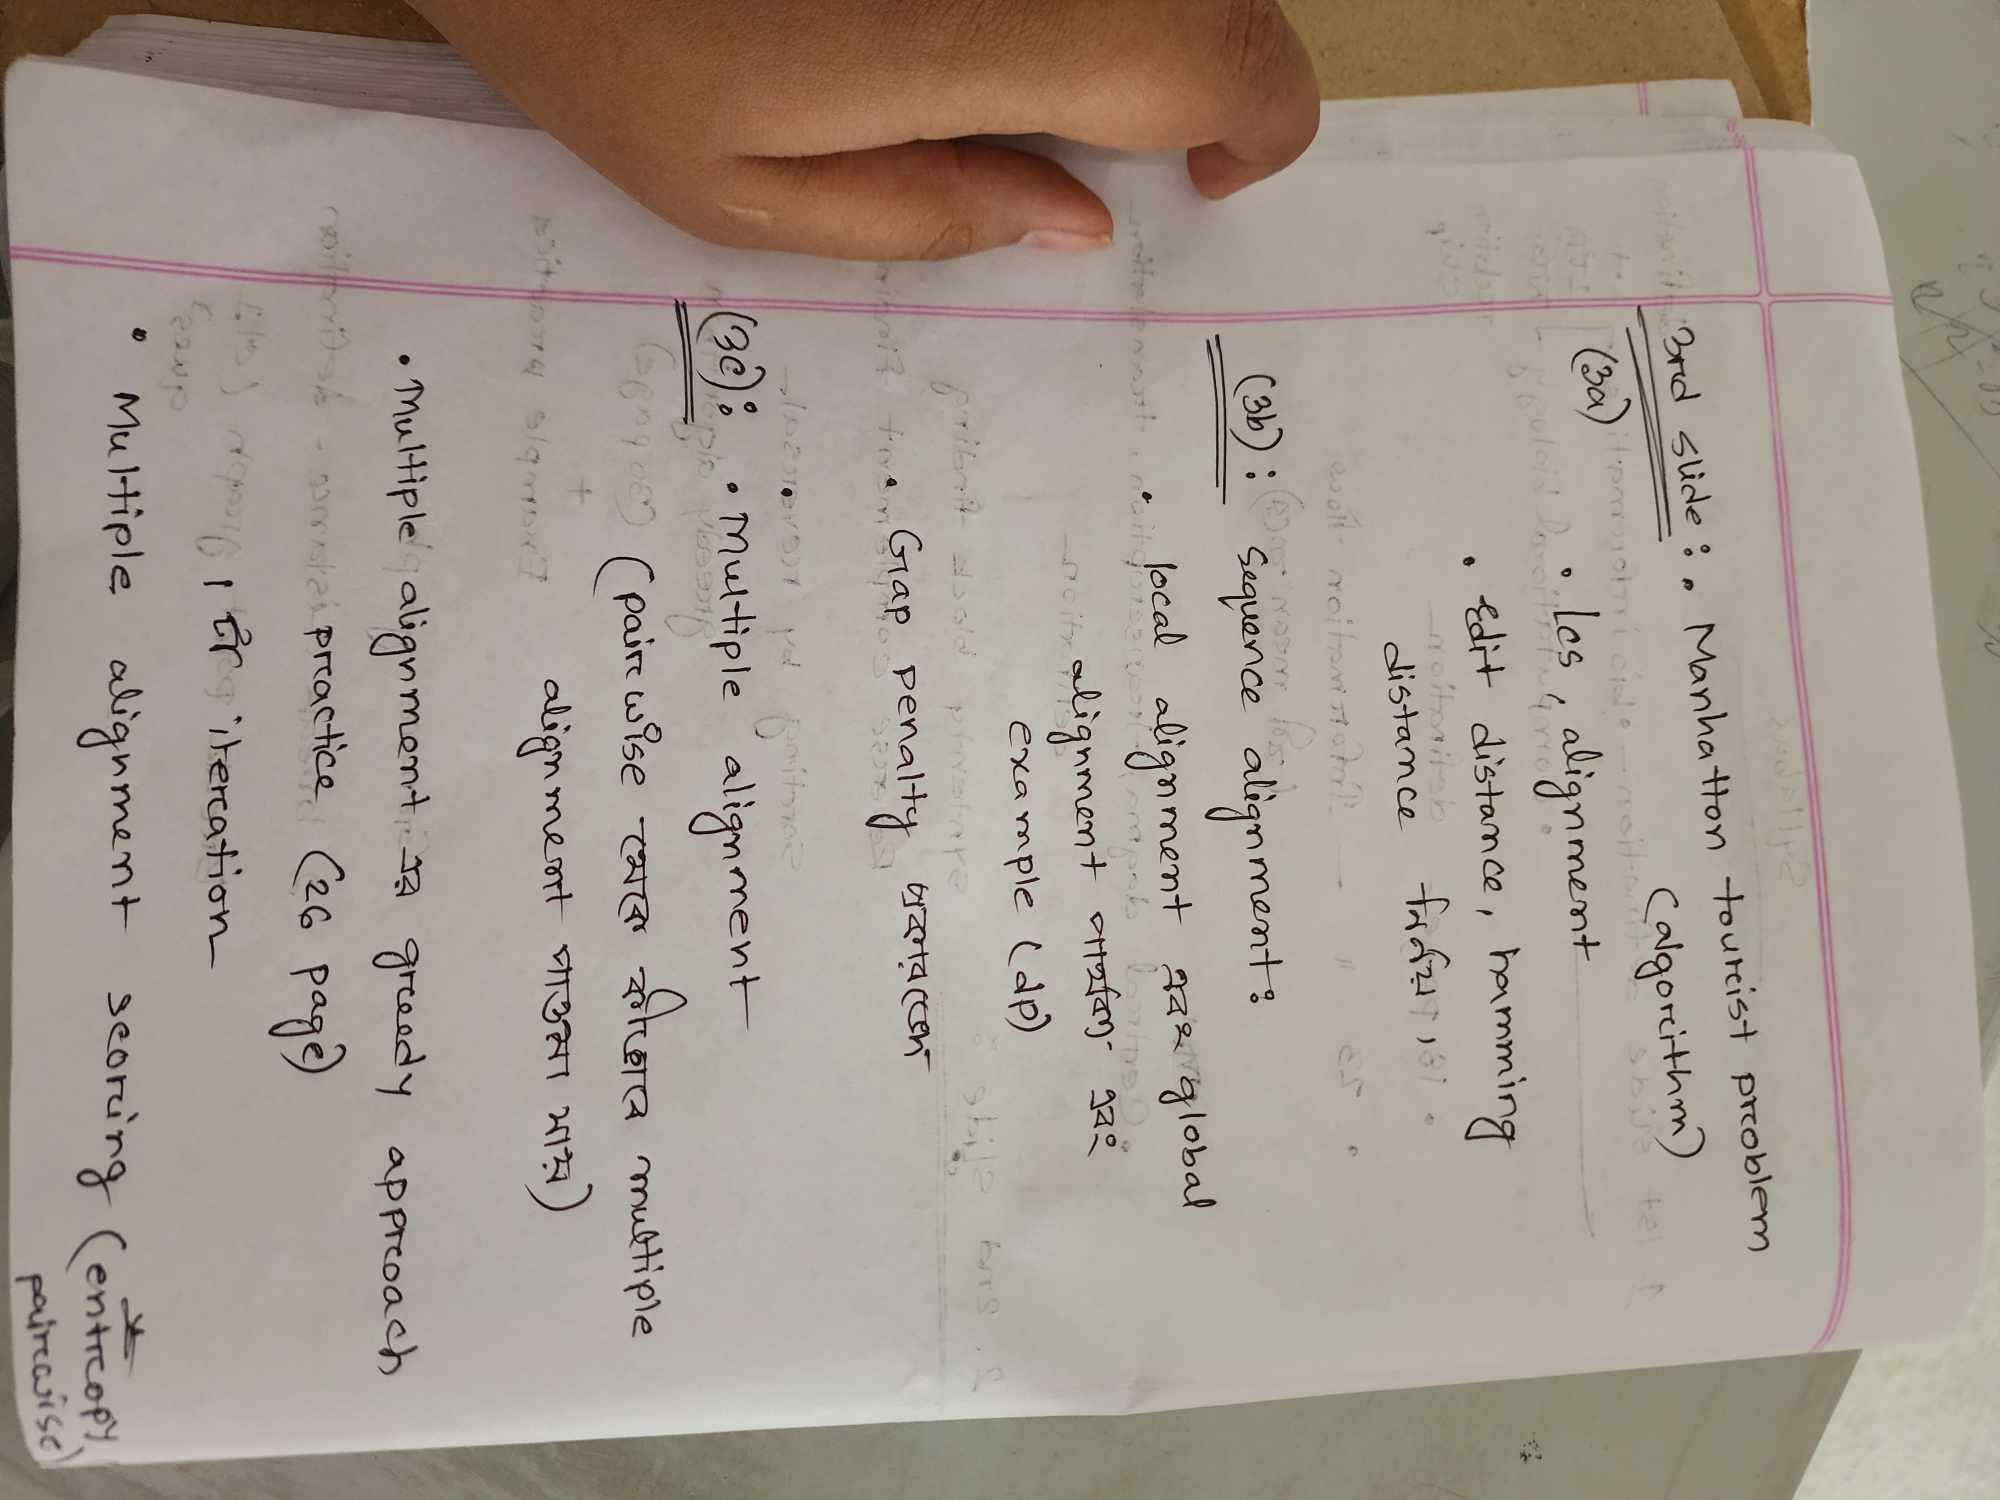 3rd slide : • Manhatton tourist problem
(algorithm)
(3a)
• Lcs, alignment
• Edit distance, hamming
distance নির্নয়।
(3b) : Sequence alignment :
• local alignment এবং global
alignment পার্থক্য এবং
example (dp)
• Gap penalty প্রকারভেদ
(3c) : • Multiple alignment
(pairwise থেকে কীভাবে multiple
alignment পাওয়া যায়)
• Multiple alignment এর greedy approach
practice (26 page)
, টা iteration
• Multiple alignment scoring (entropy,
pairwise)